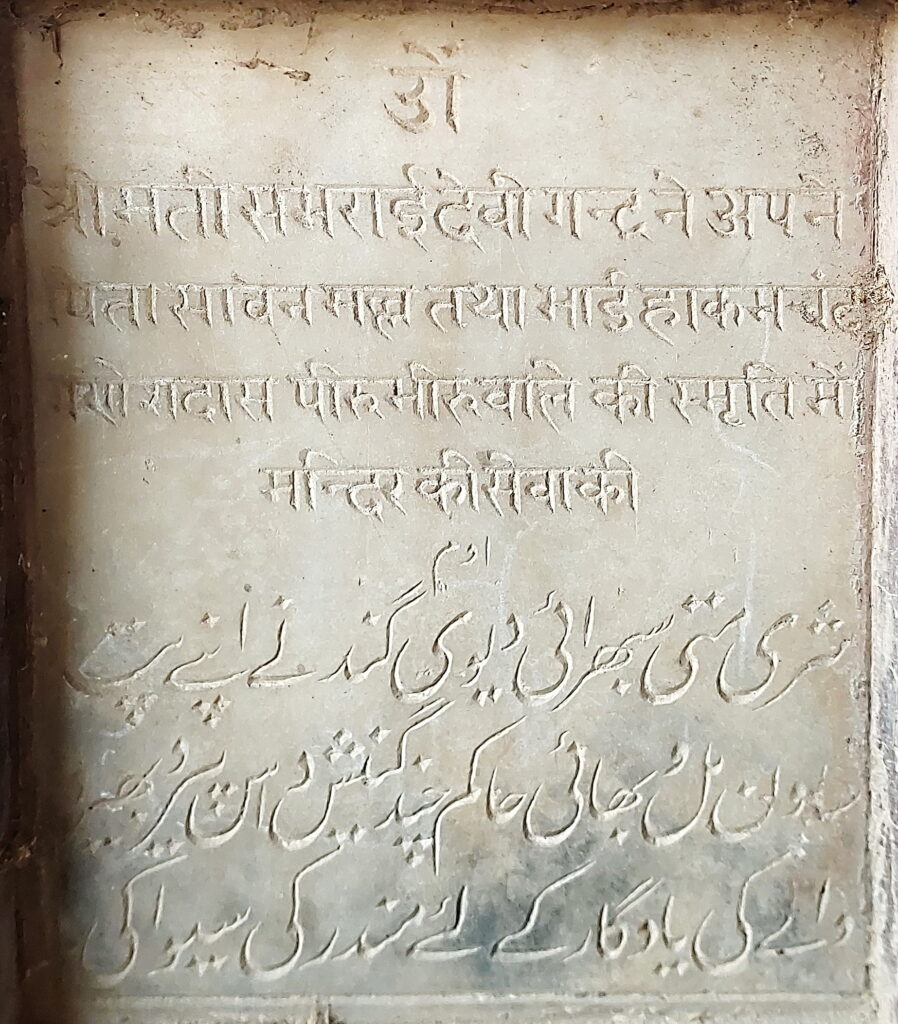 ओं
श्रीमती सभराई देवी गन्द ने अपने
पिता सावन मल्ल तथा भाई हाकम चंद
गणेशदास पीरुभीरुवाले की स्मृति में
मन्दिर की सेवा की
اوم
شری متی سبھرائی دیوی گند نے اپنے پتا
ساون مل و بھائی حاکم چند گنیش داس پیرو بھیرو
والے کی یادگار کے لئے مندر کی سیوا کی